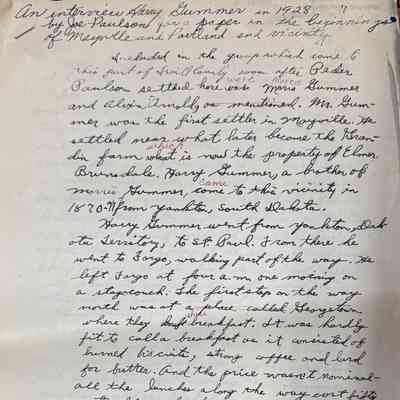 An interview Harry Gummer in 1928
by Joe Paulson for a paper in the beginnings
of Mayville and Portland and vicinity.
Included in the group which came to
this part of Traill County soon after Peder
Paulson settled here was were Morris Gummer
and Alvin Arnold, as mentioned. Mr. Gum-
mer was the first settler in Mayville. He
settled near what later became the Gran-
din farm what which is now the property of Elmer
Brunsdale. Harry Gummer, a brother of
Morris Gummer, came to this vicinity in
1870 from Yankton, South Dakota.
Harry Gummer went from Yankton, Dak
ota Territory, to St. Paul. From there he
went to Fargo, walking part of the way. He
left Fargo at four a.m. one morning on
a stagecoach. The first stop on the way
north was at a place called Georgetown
where they breakfast. It was hardly
fit to call a breakfast as it consisted of
burned biscuits, strong coffee and lard
for butter. And the price wasn't nominal-
all the lunches along the way cost fifty